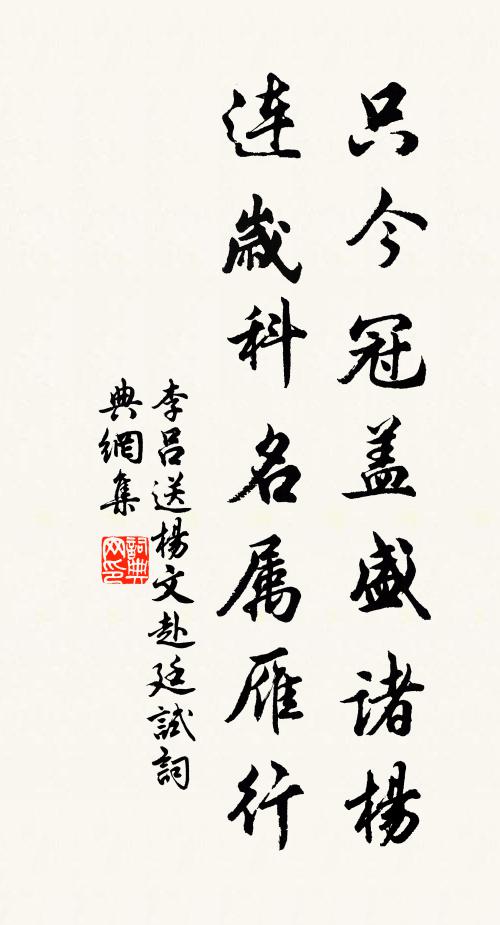 只今冠盖盛诸楊
连歲科名属雁行
李吕送楊文赴廷試詞
典網集
詞典網印